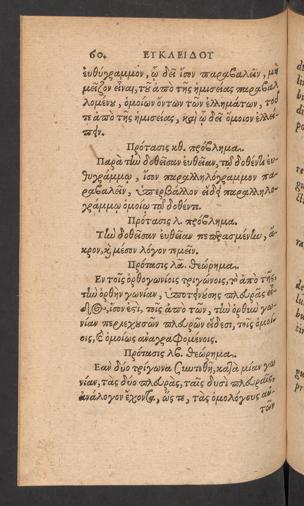 60. ΕΥΚΛΕΙΔΟΥ
εὐθύγραμμον, ᾧ δεῖ ἴσον παραβαλεῖν, μὴ
μεῖζον εἶναι, τοῦ ἀπὸ τῆς ἡμισείας παραβαλ
λομένου, ὁμοίων ὄντων τῶν ἐλλημάτων, τοῦ
τε ἀπὸ τῆς ἡμισείας, καὶ ᾧ δεῖ ὅμοιον ἐλλεί
πειν.
Πρότασις κθ. πρόβλημα.
Παρὰ τὴν δοθεῖσαν εὐθεῖαν, τῷ δοθέντι εὐ
θυγράμμῳ, ἴσον παραλληλόγραμμον πα
ραβαλεῖν, ὑπερβάλλον εἴδει παραλληλο
γράμμῳ ὁμοίῳ τῷ δοθέντι.
Πρότασις λ. πρόβλημα.
Τὴν δοθεῖσαν εὐθεῖαν πεπερασμένην, ἄ
κρον, καὶ μέσον λόγον τεμεῖν.
Πρότασις λα. θεώρημα.
Εν τοῖς ὀρθογωνίοις τριγώνοις, τὸ ἀπὸ τῆς,
τὴν ὀρθὴν γωνίαν, ὑποτεινούσης πλευρᾶς εἶ
δος, ἴσον ἐστὶ, τοῖς ἀπὸ τῶν, τὴν ὀρθὴν γω
νίαν περιεχουσῶν πλευρῶν εἴδεσι, τοῖς ὁμοί
οις, καὶ ὁμοίως ἀναγραφομένοις.
Πρότασις λβ. θεώρημα.
Εὰν δύο τρίγωνα συντεθῇ, κατὰ μίαν γω
νίαν, τὰς δύο πλευρὰς, ταῖς δυσὶ πλευραῖς,
ἀνάλογον ἔχοντα, ὥς τε, τὰς ὁμολόγους αὐ-
τῶν